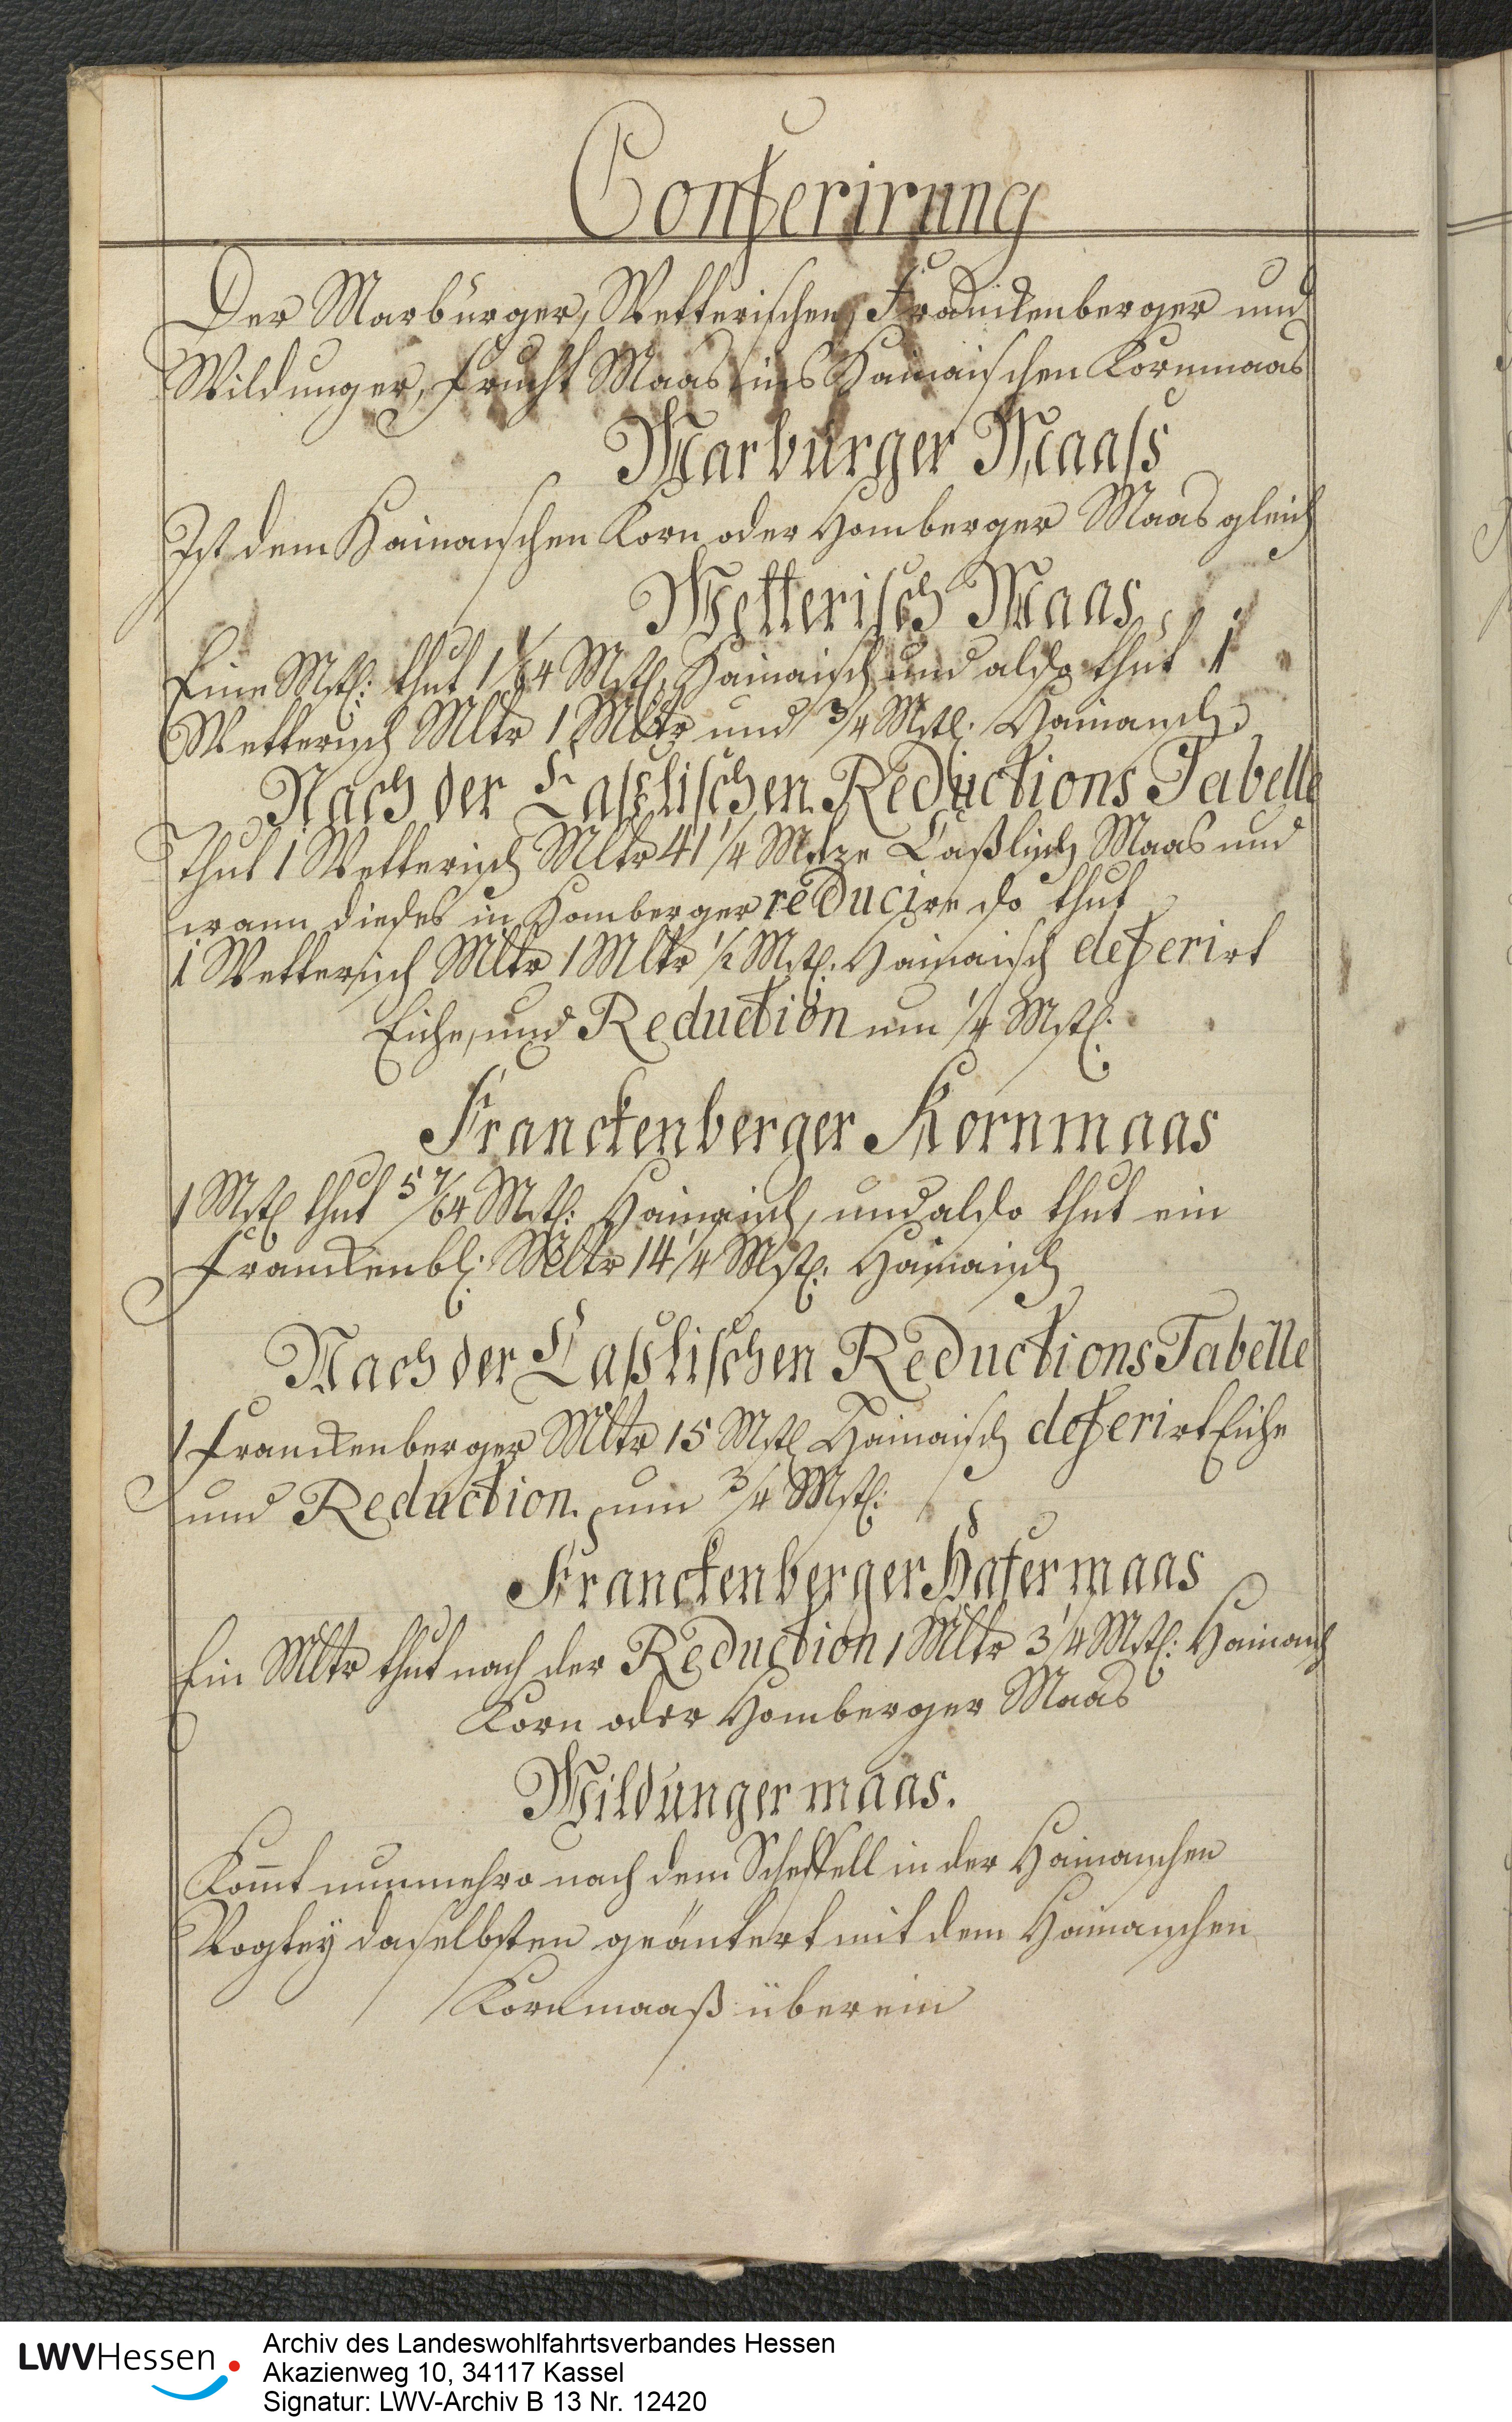 Conferirung
Der Marburger, Wetterischen, Franckenberger und
Wildunger, Frucht Maas ins Hainaischen Kornmaas
Marburger Maass
Ist dem Hainaischen Korn oder Homberger Maas gleich
Wetterisch Maas
Eine Mstl: thut 1 1/64 Mstl. Hainaisch und also thut 1
Wetterisch Mltr 1 Mltr und 3/4 Mstl. Hainaisch
Nach der Casslischen Reductions Tabelle
Thut 1 Wetterisch Mltr 41 1/4 Metze Caßlisch Maas und
wann dieses in Homberger reducire so thut
1 Wetterisch Mltr 1 Mltr 1/2 Mstl. Hainaisch deferirt
Eiche, und Reduction um 1/4 Mstl.
Franckenberger Kornmaas
1 Mstl thut 57/64 Mstl: Hainaisch, und also thut ein
Franckenbl: Mltr 14 1/4 Mstl: Hainaisch
Nach der Casslischen Reductions Tabelle
1 Franckenberger Mltr 15 Mstl Hainaisch deferirt Eiche
und Reduction um 3/4 Mstl:
Franckenberger Hafermaas
Ein Mltr thut nach der Reduction 1 Mltr 3 1/4 Mstl: Hainaisch
Korn oder Homberger Maas
Wildunger maas.
Kom̄t nunmehro nach dem Scheffell in der Hainaischen
Vogtey daselbsten geäntert mit dem Hainaischen
Kornmaaß überein
LWVHessen
Archiv des Landeswohlfahrtsverbandes Hessen
Akazienweg 10, 34117 Kassel
Signatur: LWV-Archiv B 13 Nr. 12420